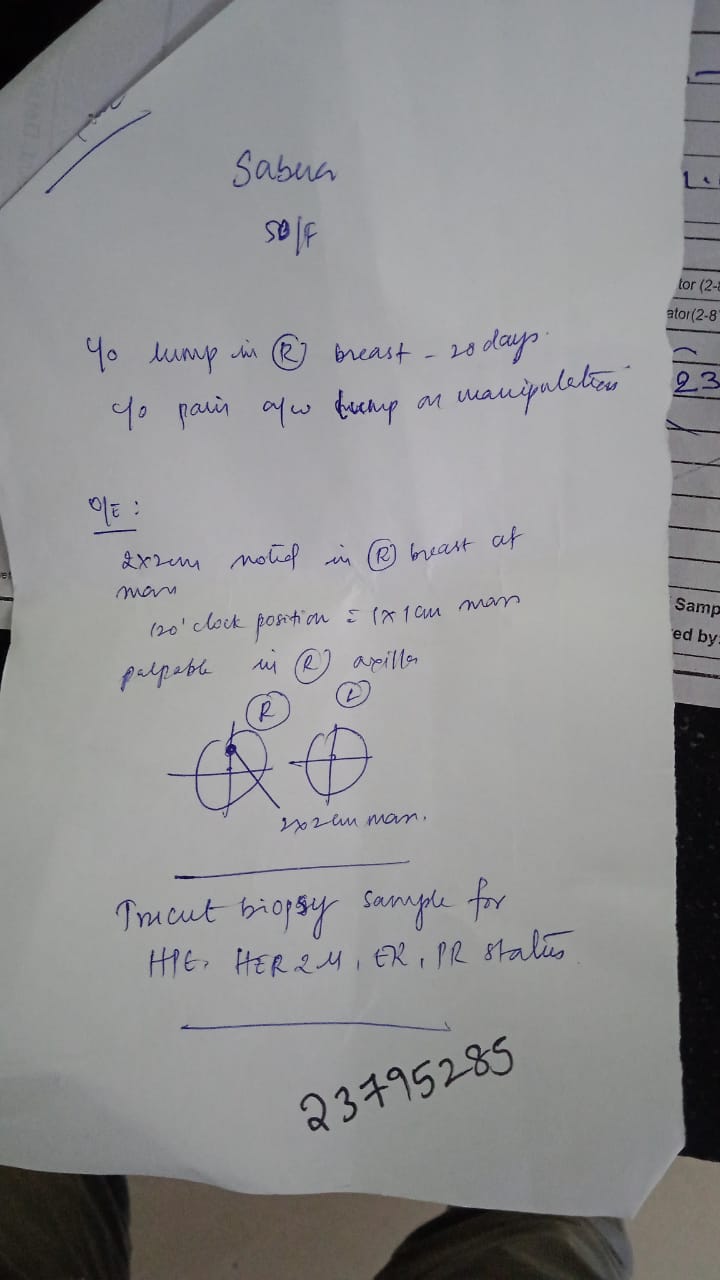 Sabera
50/F
c/o lump in (R) breast - 20 days.
c/o pain a/w lump on manipulation
O/E :
2x2cm noted in (R) breast at
mass
12o'clock position = 1x1cm mass
palpable in (R) axilla
(R) (L)
2x2cm mass.
Trucut biopsy sample for
HPE, HER2, ER, PR status.
23795285
tor (2-8
ator(2-8
23
Samp
ed by: